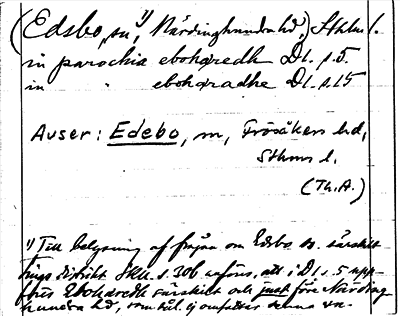 (Edsbo, sn,¹⁾ Närdinghundra hd,) Sthlms l.
in parochia ebohæredh D I. s. 5
in " ebohæradhe D I. s. 15
Avser: Edebo, sn, Frösåkers hd,
Sthms l.
(Th.A.)
¹⁾ Till belysning af frågan om Edebo sn. särskilt
distrikt s. 306 anföres, att i D I. s. 5 upp-
föres Ebohæredh särskilt och just före Närding-
hundra hd, som denna